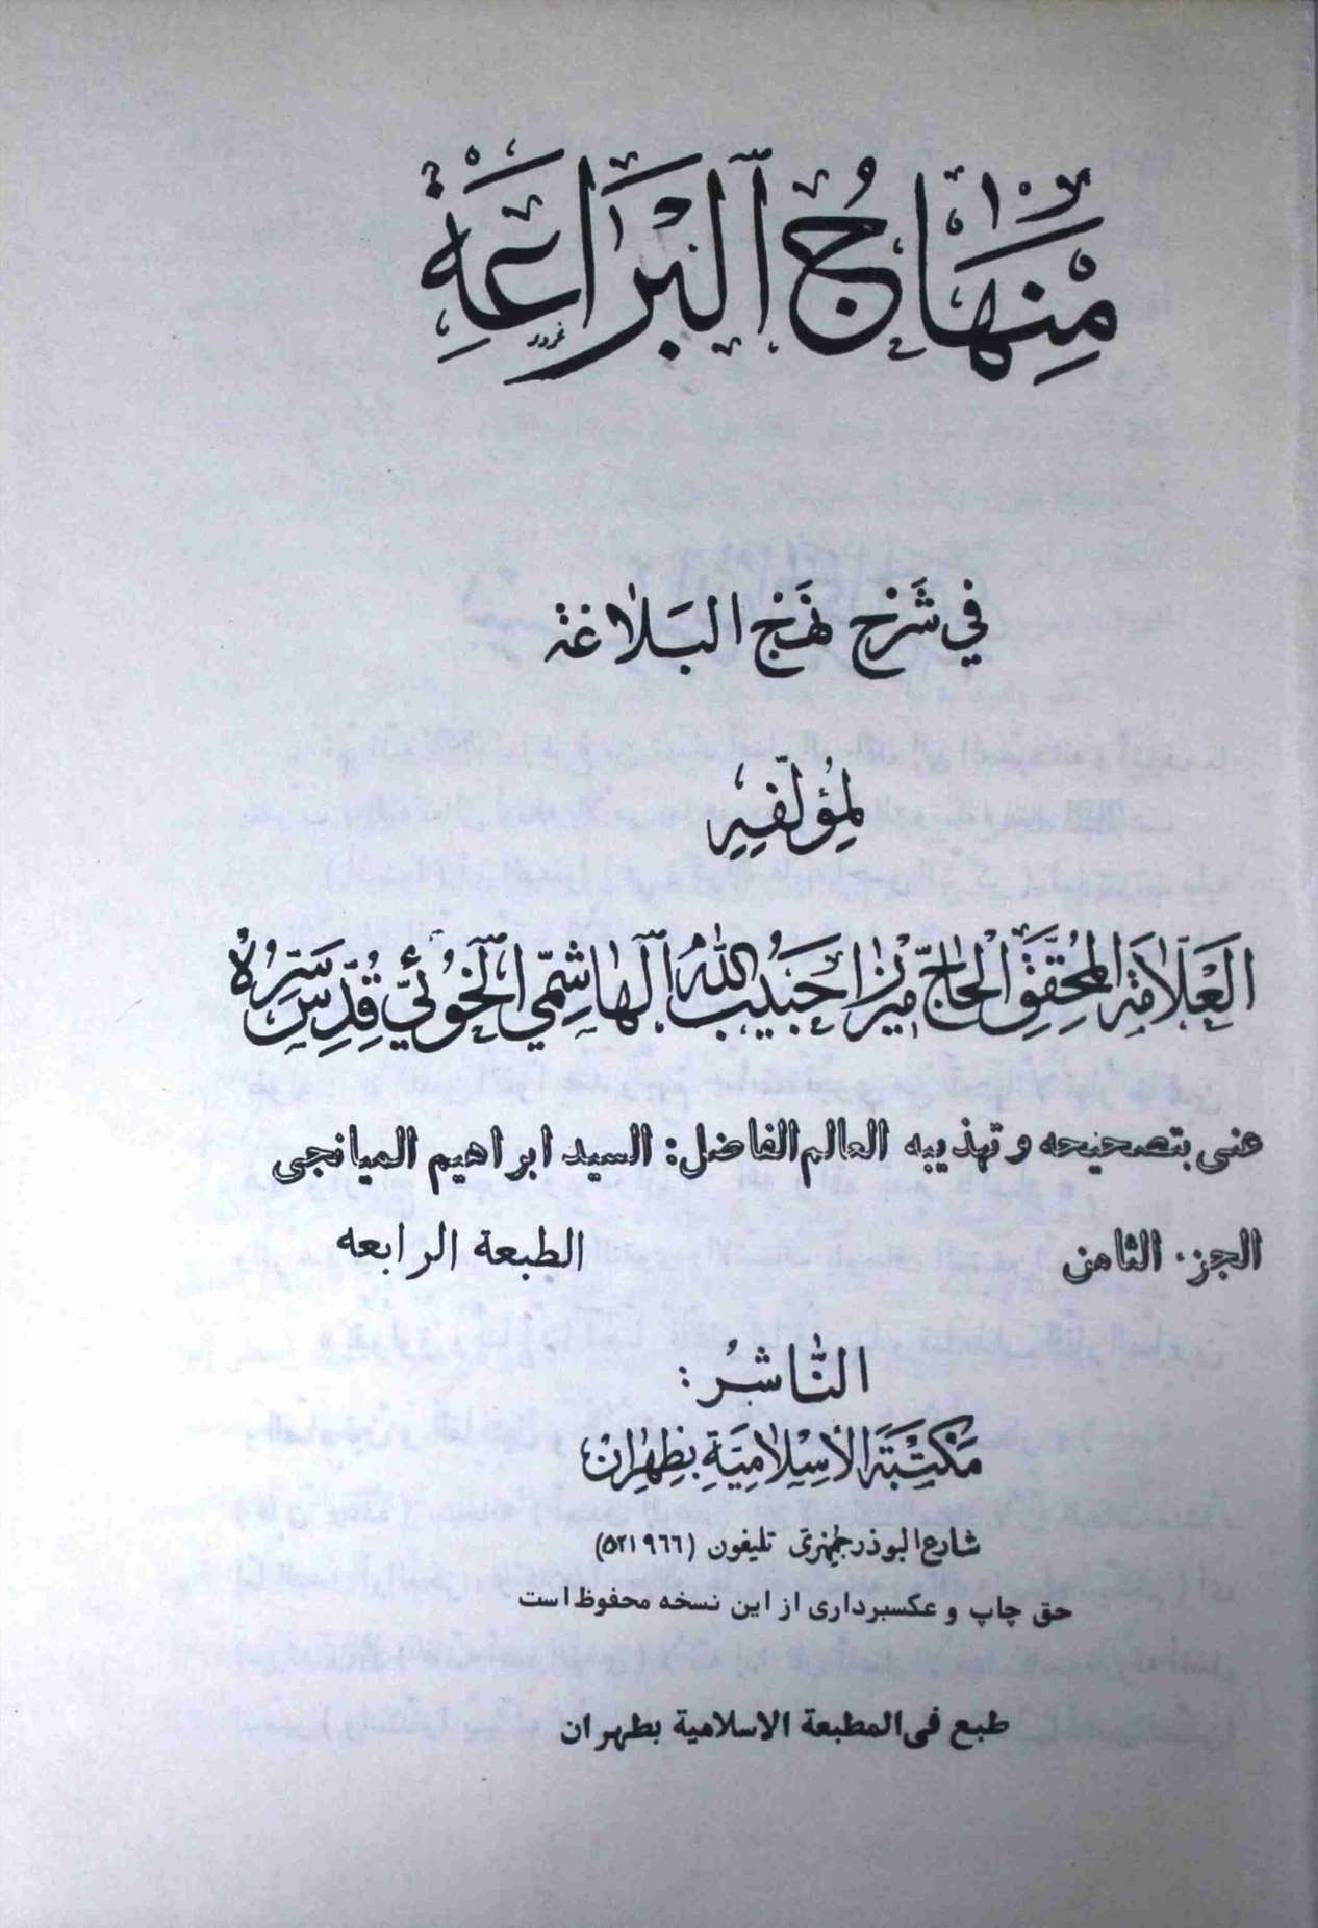 مِنْهَاجُ الْبَرَاعَةِ
في شَرْحِ نَهْجِ البَلاغَة
لِمُؤَلِّفِهِ
العَلّامَة المُحَقِّقِ الحَاجّ مِيرزا حَبيبُ اللهُ الهاشِمِي الخُوئيّ قُدِّسَ سِرُّهُ
عنى بتصحيحه و تهذيبه العالم الفاضل: السيد ابراهيم الميانجى
الجزء الثامن الطبعة الرابعه
النَّاشِرُ:
مَكْتَبَةَ الأِسْلامِيَّةِ بِطِهْرانُ
شارع البوذرجمهرى تليفون (٥٢١٩٦٦)
حق چاپ و عکسبرداری از این نسخه محفوظ است
طبع فى المطبعة الاسلامية بطهران